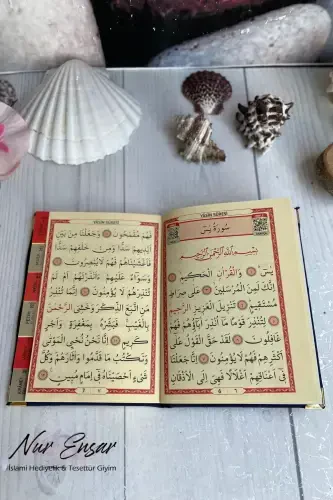 YASİN SÛRESİ
سُورَةُ يٰسٓ
بِسْمِ اللّٰهِ الرَّحْمٰنِ الرَّحِيمِ
يٰسٓ وَالْقُرْاٰنِ الْحَكِيمِ
اِنَّكَ لَمِنَ الْمُرْسَلِينَ عَلٰى صِرَاطٍ
مُسْتَقِيمٍ تَنْزِيلَ الْعَزِيزِ الرَّحِيمِ
لِتُنْذِرَ قَوْمًا مَٓا اُنْذِرَ اٰبَٓاؤُهُمْ فَهُمْ
غَافِلُونَ لَقَدْ حَقَّ الْقَوْلُ عَلٰٓى
اَكْثَرِهِمْ فَهُمْ لَا يُؤْمِنُونَ اِنَّا جَعَلْنَا
فِٓي اَعْنَاقِهِمْ اَغْلَالًا فَهِيَ اِلَى الْاَذْقَانِ
YASİN SÛRESİ
فَهُمْ مُقْمَحُونَ وَجَعَلْنَا مِنْ بَيْنِ
اَيْدِيهِمْ سَدًّا وَمِنْ خَلْفِهِمْ سَدًّا
فَاَغْشَيْنَاهُمْ فَهُمْ لَا يُبْصِرُونَ
وَسَوَٓاءٌ عَلَيْهِمْ ءَاَنْذَرْتَهُمْ اَمْ لَمْ
تُنْذِرْهُمْ لَا يُؤْمِنُونَ اِنَّمَا تُنْذِرُ
مَنِ اتَّبَعَ الذِّكْرَ وَخَشِيَ الرَّحْمٰنَ
بِالْغَيْبِ فَبَشِّرْهُ بِمَغْفِرَةٍ وَاَجْرٍ
كَرِيمٍ اِنَّا نَحْنُ نُحْيِ الْمَوْتٰى
وَنَكْتُبُ مَا قَدَّمُوا وَاٰثَارَهُمْ وَكُلَّ
شَيْءٍ اَحْصَيْنَاهُ فِٓي اِمَامٍ مُبِينٍ
Nur Ensar
İslami Hediyelik & Tesettür Giyim